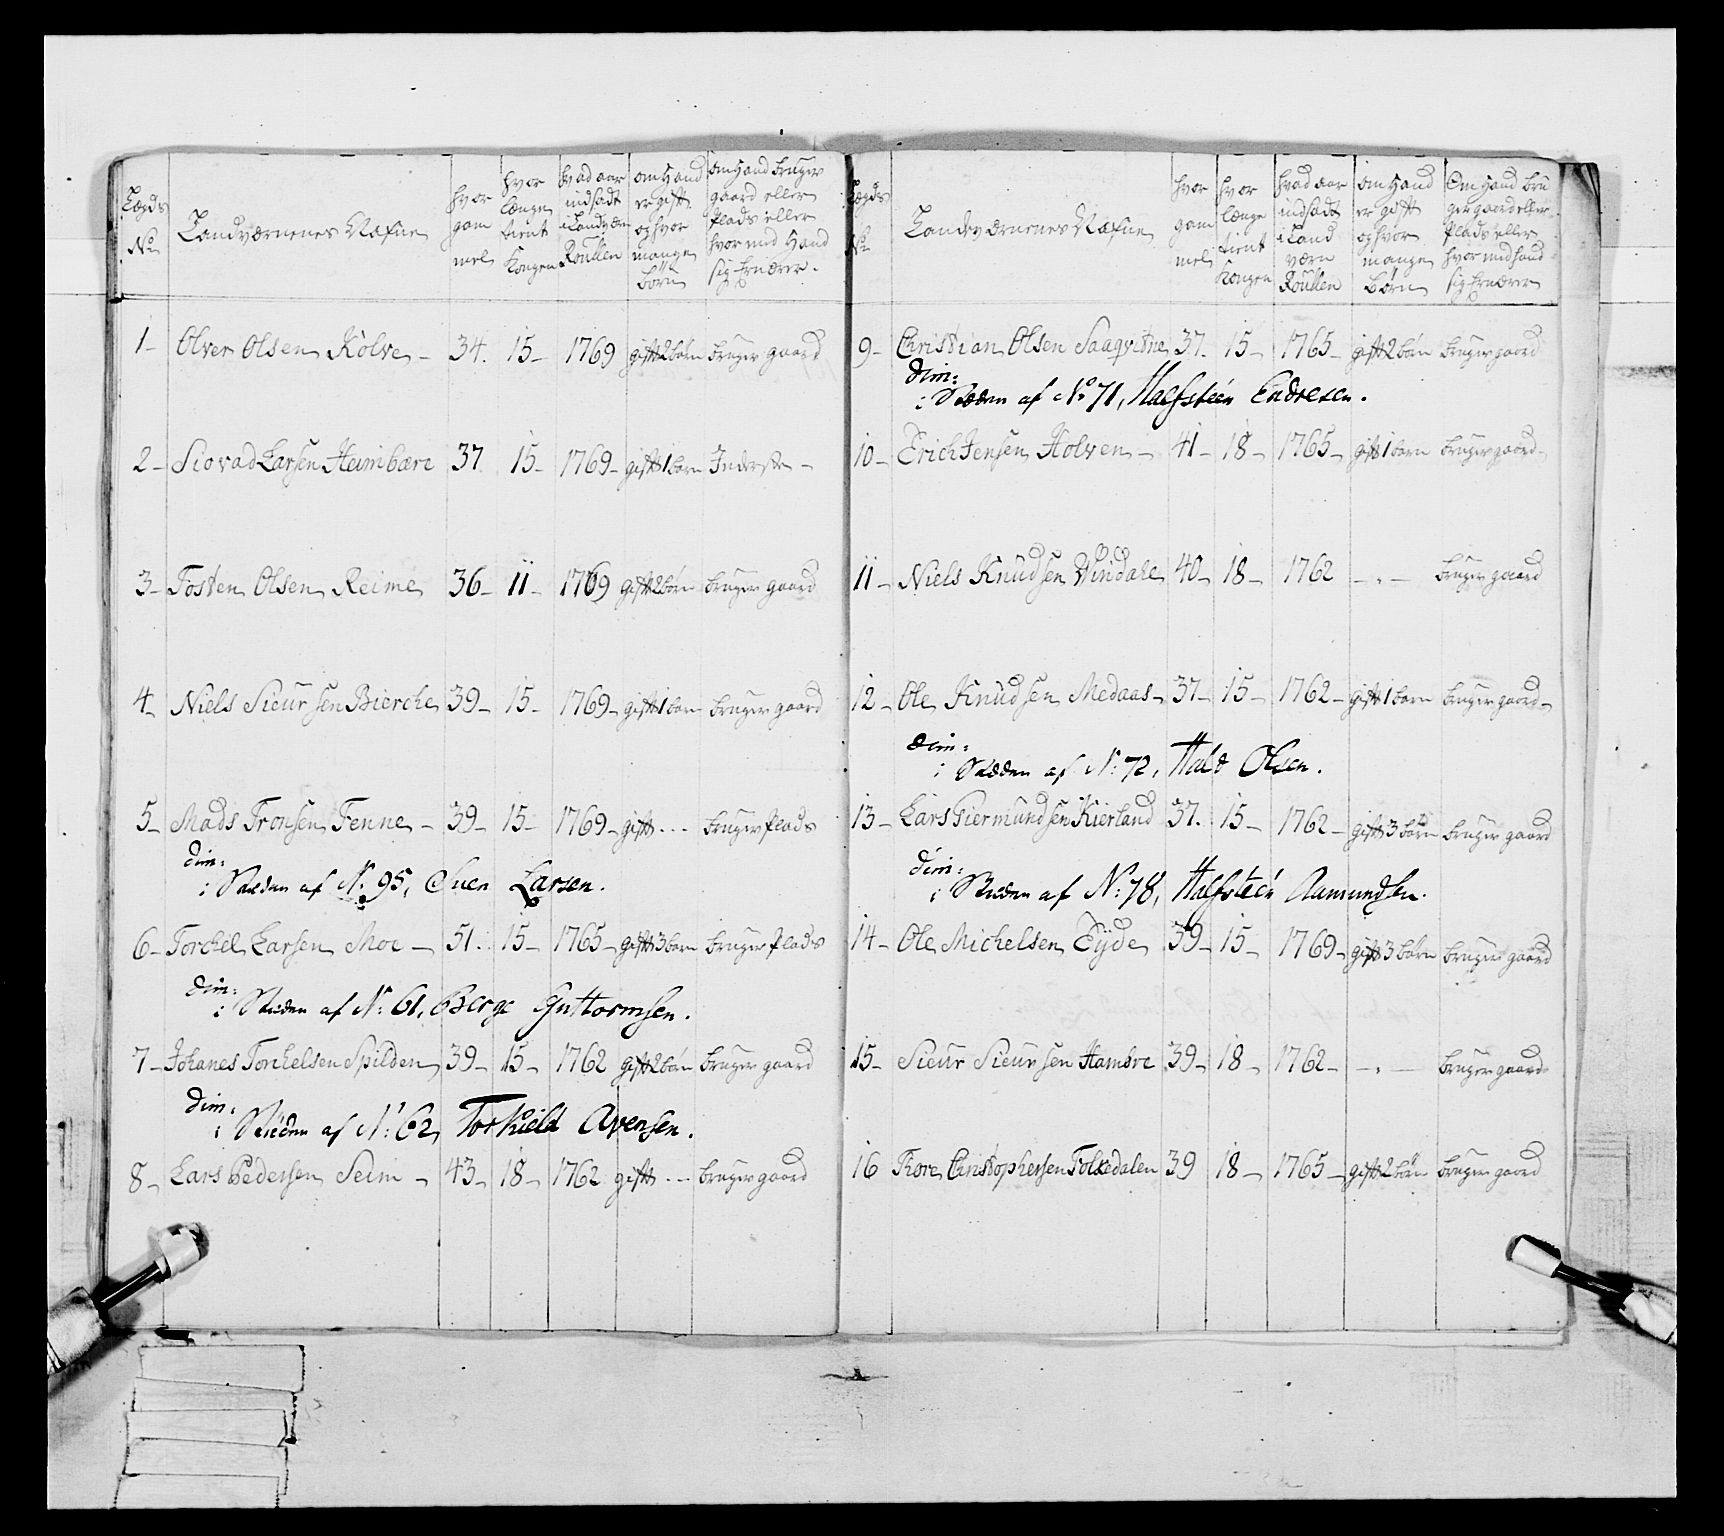 Lægds No Landværnenes Nafne hvor gam mel hvor længe tient Kongen hvad aar indsadt i Landværn Roullen om Hand er gift og hvor mange Børn om Hand bruger gaard eller Plads eller hvor med Hand sig Ernærer.
1 - Olver Olsen Kolve - 34. 15 - 1769 gift 2 børn bruger gaard
2 - Siovad Larsen Heimbære 37. 15 - 1769 - gift 1 barn Inderste -
3 - Tosten Olsen Reime 36 - 11 - 1769 gift 2 børn bruger gaard
4 - Niels Sieursen Bierche 39 - 15 - 1769 - gift 1 barn bruger gaard
5 - Mads Tronsen Fenne - 39 - 15 - 1769 - gift - - - bruger Plads
dim:
i Stæden af No. 95, Suen Larsen.
6 - Torchel Larsen Moe - 51. 15 - 1765 - gift 3 børn bruger Plads
dim:
i Stæden af N: 61, Berge Guttormsen.
7 - Johanes Torchelsen Spilden 39 - 15 - 1762 gift 2 børn bruger gaard
dim:
i Stæden af N: 62, Torkield Avensen.
8 - Lars Pedersen Seim - 43 - 18 - 1762 gift - - bruger gaard
Lægds No Landeværnenes Nafne hvor gam mel hvor længe tient Kongen hvad aar indsadt i Land værn Roullen om Hand er gift og hvor mange Børn Om Hand bru ger gaard eller Plads eller hvor med hand sig Ernærer
9 - Christian Olsen Saaqvitne 37. 15 - 1765 - gift 2 børn bruger gaard
dim:
i Stæden af No 71, Halfsteen Endresen.
10 - Erich Jensen Holven - 41 - 18 - 1765 - gift 1 barn bruger gaard -
11 - Niels Knudsen Windahl 40 - 18 - 1762 - . - bruger gaard
12 - Ole Knudsen Medaas - 37 - 15 - 1762 - gift 1 barn bruger gaard -
dim:
i Stæden af N: 72, Hald Olsen.
13 - Lars Giermundsen Kierland 37. 15 - 1762 - gift 3 børn bruger gaard
dim:
i Stæden af N: 78, Halfsteen Aamundsen.
14 - Ole Michelsen Eyde 39 - 15 - 1769 - gift 3 børn bruger gaard
15 - Sieur Sieursen Hamore 39 - 18 - 1762 - - . - bruger gaard -
16 Tore Christophersen Folkedalen 39 18 - 1765 - gift 2 børn bruger gaard